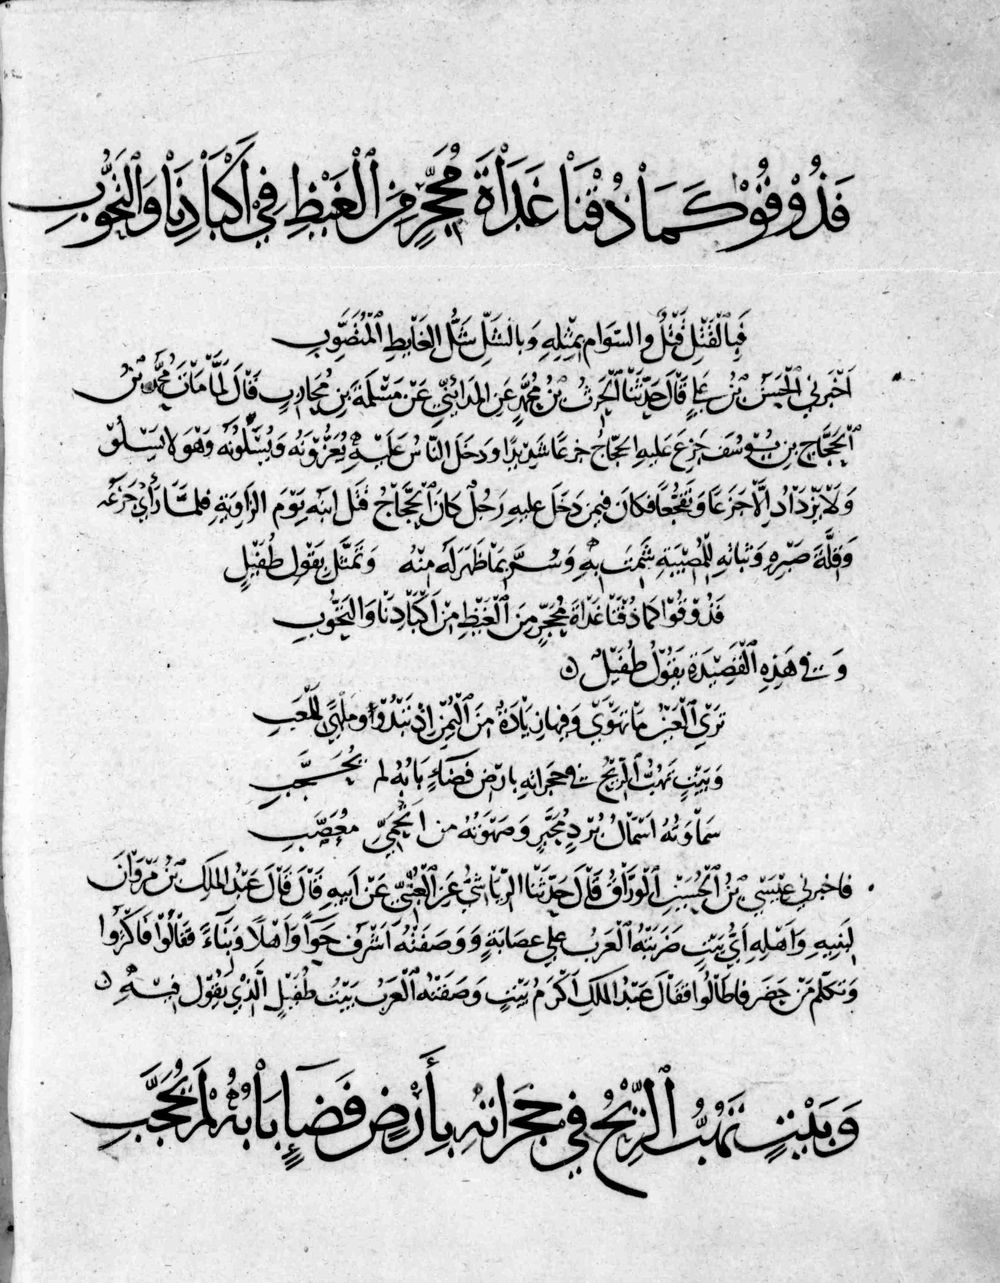 فَذُوْقُوْا كَمَاْ ذُقْنَاْ غَدَاْةَ مُحَجِّرٍ مِنَ ٱلْغَيْظِ فِيْ أَكْبَاْدِنَاْ وَٱلتَّحَوُّبِ
فَبِٱلْقَتْلِ قَتْلٌ والسّوَام بِمِثْلِهِ وَبالشَّلِّ شَلُّ الغَايطِ ٱلْمُتَصَوِّبِ
اَخْبرَنِي ٱلْحَسَنُ بْنُ عَلِيٍ قَالَ حَدَّثَنَا ٱلْحرِثُ بْنُ مُحمَّدٍ عَنِ المَدَائِنيِّ عَنْ مَسْلَمَةَ بنِ مُحَارِبٍ قَالَ لَمَّا مَاتَ مُحمَّدُ بْنُ
ٱلْحَجَّاجِ بنِ يُوْسُفَ جَزِعَ عَليهِ الحجّاجُ جزعًا شدِيْدًا وَدخَلَ النّاسُ عَلَيْهِ يُعَزُّوْنَهُ وَيُسَلُّوْنَهُ وَهْوَ لا يَسْلُوْ
وَلَا يَزْدَادُ اِلَّا جَزعًا وَتفَجُّعًا فكانَ فيمن دَخَلَ عليهِ رَجُلٌ كانَ ٱلْحَجَّاجُ قتَلَ ابنَه يَوْمَ الزّاويَةِ فلمّا رَأىَ جَزعَه
وَقِلَّةَ صَبْرِهِ وَثباتِهِ لِلْمُصِيْبَةِ شَمِتَ بهِ وَسُرَّ بمَا ظَهَرَ لَهُ مِنْهُ وَتَمَثَّلَ بِقَوْلِ طُفَيْلٍ
فَذُوْقُوْا كمَا ذُقْنَا غَدَاةَ مُحَجِّرٍ مِنَ ٱلْغَيْظِ مِنْ اَكْبَادِنَا وَالتَّحَوُّبِ
وَفِي هَذِهِ ٱلْقَصِيْدَةِ يَقُوْلُ طُفَيْلٌ
تَرَىَ ٱلْعَيْنُ مَا تَهْوَىَ وَفيهَا زِيَادَةٌ مِنَ ٱلْيُمْنِ اِذْ تَبْدُوْا وَملْهًى لِمَلْعَبِ
وَبَيْتٍ تَهُبُّ ٱلرِّيْحُ فِي حجَراتِهِ بارْضِ فَضَاءٍ بَابُهُ لم يُحَجَّبِ
سَمَاْوَتُهُ اَسْمَالُ بُرْدٍ مُحَبَّرٍ وَصَهْوَتُهُ من اَتْحمِيٍّ معَصَّبِ
فاخبرَنِي عيْسَى بْنُ ٱلْحُسَيْنِ ٱلْوَرَّاقُ قَالَ حَدّثَنَا الرِّيَاشيُّ عَنِ ٱلْعُتْبيِّ عَنْ اَبيهِ قَالَ قَالَ عَبْدُ المَلِكِ بْنُ مرْوَانَ
لِبَنِيهِ وَاَهْلِهِ اَيُّ بَيْتٍ ضَرَبَتْهُ ٱلْعَرَبُ عَلى عِصَابَةٍ وَوَصَفَتْهُ اَشْرَفُ حِوَاً وَاَهْلًا وَبِنَاءً فقَالُوْا فَاَكْثَرُوْا
وَتكلّمَ مَنْ حَضَرَ فاطَالُوا فقَالَ عَبْدُ الملكِ اكْرَمُ بَيْتٍ وَصَفَتْهُ ٱلْعَرَبُ بَيْتُ طُفَيْلٍ الَّذِيْ يَقُوْلُ فيهِ
وَبَيْتٍ تَهُبُّ ٱلرِّيْحُ فِي حَجَرَاتِهِ بِأَرْضِ فَضَاءٍ بَاْبُهُ لَمْ يُحَجَّبِ